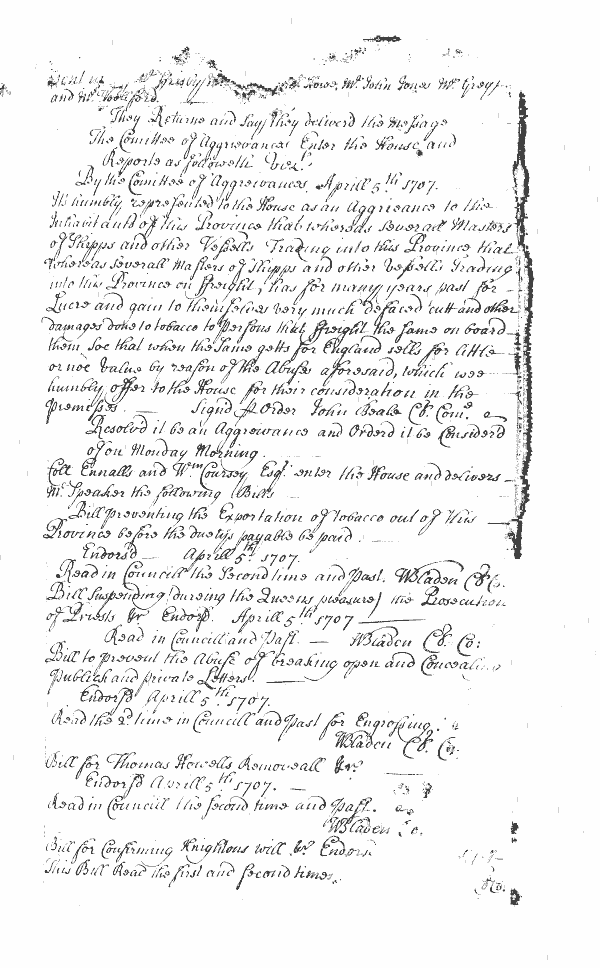 Howe, Mr. John Jones Mr. Grey
and Mr.
They Returne and say they deliverd the Message
The Comittee of Aggrievances Enter the House and
Reporte as followeth Vizt.
By the Comittee of Aggrievances, Aprill 5th 1707.
Its humbly represented to the House as an Aggrieance to the
Inhabitants of this Province that whereas severall Masters
of Shipps and other Vessells Trading into this Province that
whereas severall Masters of Shipps and other Vessells Trading
into this Province on ffreight, has for many years past for
Lucre and gain to themselves very much defaced cutt and other
damages done to tobacco to Persons that ffreight the same on board
them Soe that when the Same getts for England sells for little
or noe value by reason of the Abuses aforesaid, which wee
humbly offer to the House for their consideration in the
Premisses. Signd Order John Beale Cl. Com.
Resolvd it be an Aggrievance and Orderd it be Considerd
of on Monday Morning.
Coll Ennalls and Wm Coursey Esqr. enter the House and delivers
Mr. Speaker the following Bills
Bill preventing the Exportation of tobacco out of this
Province before the dutys payable be paid.
Endorsd Aprill 5th 1707.
Read in Councill the Second time and past. WBladen Cl. Co.
Bill Suspending (during the Queens pleasure) the Prosecution
of Priests &c Endorsd. Aprill 5th 1707
Read in Councill and Past. WBladen Cl. Co:
Bill to prevent the Abuse of breaking open and Concealing
Publick and private Letters.
Endorsd Aprill 5th 1707.
Read the 2d time in Councill and past for Engrossing.
WBladen Cl. Co.
Bill for Thomas Howells Removeall &c.
Endorsd Aprill 5th 1707.
Read in Councill the second time and Past.
WBladen Co.
Bill for Confirming Knightons will &c Endors
This Bill Read the first and second time